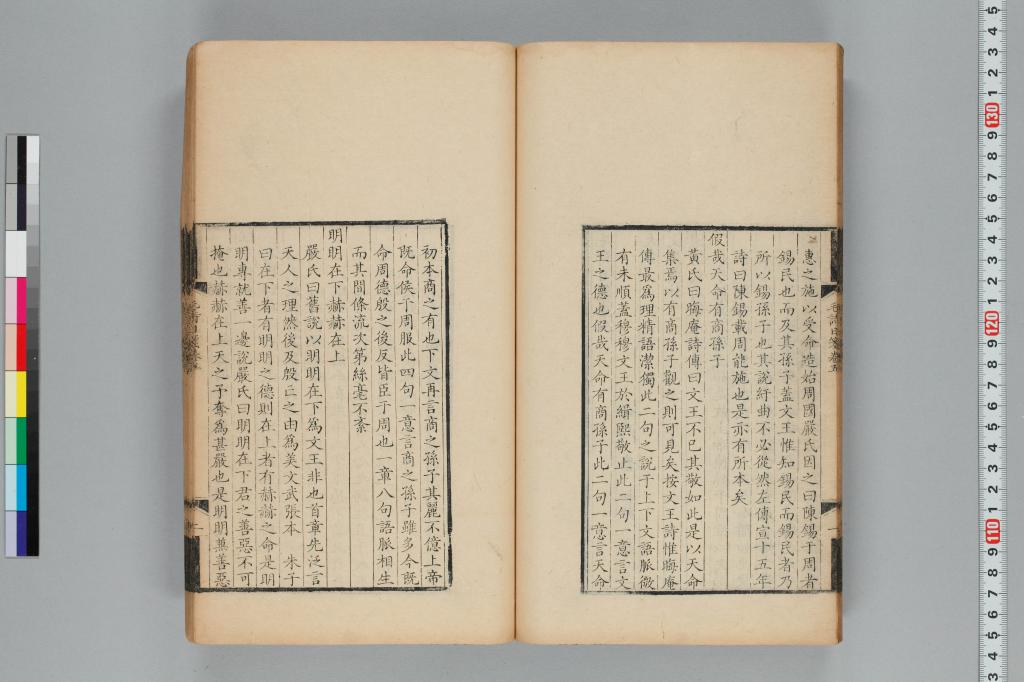 惠之施以受命造始周國嚴氏因之曰陳錫于周者
錫民也而及其孫子蓋文王惟知錫民而錫民者乃
所以錫孫子也其說紆曲不必從然左傳宣十五年
詩曰陳錫載周能施也是亦有所本矣
假哉天命有商孫子
黃氏曰晦庵詩傳曰文王不已其敬如此是以天命
集焉以有商孫子觀之則可見矣按文王詩惟晦庵
傳最爲理精語潔獨此二句之說于上下文語脈微
有未順蓋穆穆文王於緝熙敬止此二句一意言文
王之德也假哉天命有商孫子此二句一意言天命
初本商之有也下文再言商之孫子其麗不億上帝
既命侯于周服此四句一意言商之孫子雖多今既
命周德殷之後反皆臣于周也一章八句語脈相生
而其間條流次第絲毫不紊
明明在下赫赫在上
嚴氏曰舊說以明明在下爲文王非也首章先泛言
天人之理然後及殷亡之由爲美文武張本 朱子
曰在下者有明明之德則在上者有赫赫之命是明
明專就善一邊說嚴氏曰明明在下君之善惡不可
掩也赫赫在上天之予奪爲甚嚴也是明明兼善惡